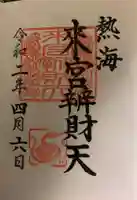 熱海
來宮辨財天
令和二年四月六日